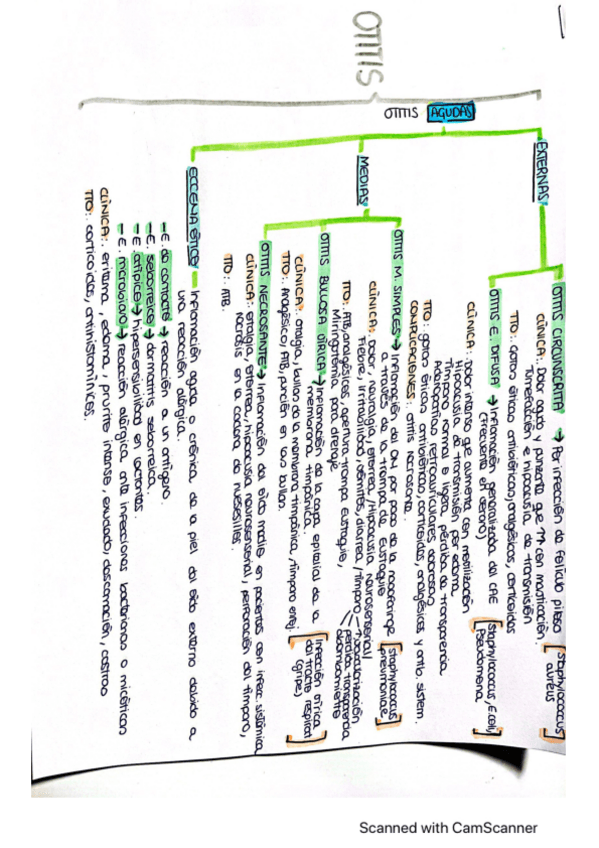 OTITIS
OTITIS AGUDAS
EXTERNAS
OTITIS CIRCUNSCRITA → Por infección de folículo piloso
[Staphylococcus aureus]
CLÍNICA: Dolor agudo y punzante que ↑↑ con masticación.
Tumefacción e hipoacusia de transmisión
TTO: Gotas óticas antibióticas, analgésicos, corticoides
OTITIS E. DIFUSA → Inflamación generalizada del CAE
(Frecuente el verano)
[Staphylococcus, E.coli, Pseudomona]
CLÍNICA: Dolor intenso que aumenta con movilización
Hipoacusia de transmisión por edema
Tímpano normal o ligera pérdida de transparencia
Adenopatías retroauriculares dolorosas
TTO: gotas óticas antibióticas, corticoides, analgésicos y antib. sistem.
COMPLICACIONES: otitis necrosante.
MEDIAS
OTITIS M. SIMPLES → Inflamación del OM por paso de la nasofaringe
a través de la trompa de Eustaquio
[Staphylococcus pneumoniae]
CLÍNICA: Dolor, neuralgia, otorrea, Hipoacusia neurosensorial/
Fiebre, irritabilidad, vómitos, diarrea, /Tímpano → hipervascularización
pérdida transparencia
abombamiento
TTO: ATB, analgésicos, apertura trompa Eustaquio,
Miringotomía para drenaje
OTITIS BULLOSA VÍRICA → Inflamación de la capa epitelial de la
membrana timpánica.
[Infección vírica del tracto respirat (gripe)]
CLÍNICA: otalgia, bullas de la membrana timpánica, tímpano enroj.
TTO: Analgésico, ATB, punción en las bullas.
OTITIS NECROSANTE → Inflamación del oído medio en pacientes con infec. sistémica
CLÍNICA: otalgia, otorrea, hipoacusia neurosensorial, perforación del tímpano,
necrosis en la cadena de huesecillos.
TTO: ATB.
ECCEMA ÓTICO — Inflamación aguda o crónica de la piel del oído externo debido a
una reacción alérgica.
- E. de contacto → reacción a un antígeno.
- E. seborreico → dermatitis seborreica.
- E. atípico → hipersensibilidad en lactantes.
- E. microbiano → reacción alérgica ante infecciones bacterianas o micóticas
CLÍNICA: eritema, edema, prurito intenso, exudado, descamación, costras
TTO: corticoides, antihistamínicos.
Scanned with CamScanner